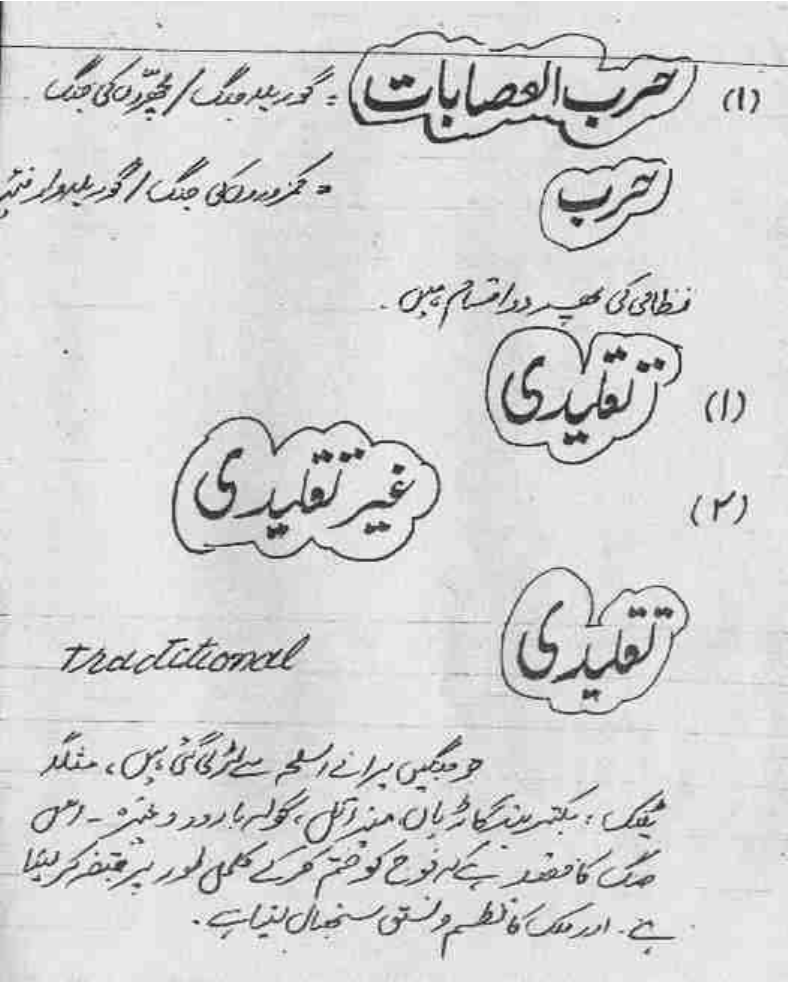 (۱) حرب العصابات = گوریلہ جنگ / چھپڑوں کی جنگ
حرب = کمزوروں کی جنگ / گوریلہ وار
نظامی کی پھر دو اقسام ہیں ۔
(۱) تقلیدی
(۲) غیر تقلیدی
تقلیدی traditional
جو جنگیں پرانے اسلحہ سے لڑی گئی ہیں ، مثلاً
ٹینک ، بکتر بند گاڑیاں، میزائل ، گولہ بارود وغیرہ ۔ اس
جنگ کا مقصد ہے کہ فوج کو ختم کر کے مکمل طور پر قبضہ کر لینا
ہے ۔ اور ملک کا نظم و نسق سنبھال لینا ہے ۔